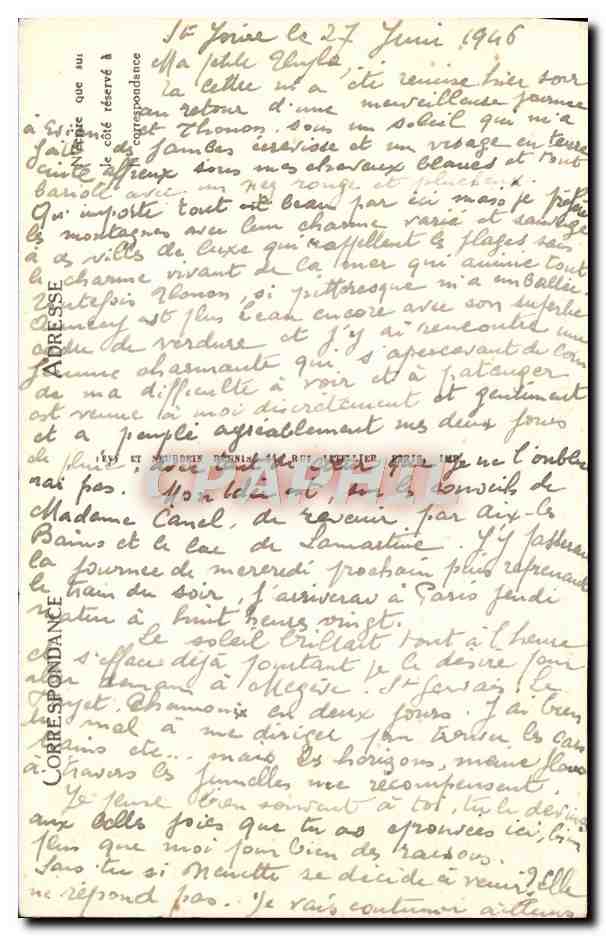 St Joire le 27 Juin 1946
Ma petite
ta lettre m'a été remise hier soir
au retour d'une merveilleuse journée
à Evian et Thonon. sous un soleil qui m'a
fait des jambes et un visage en terre
cuite affreux sous mes cheveux blancs et tout
bariolé avec un nez rouge et plucheux.
Qu'importe tout est beau par ici mais je préfère
les montagnes avec leur charme varié et sauvage
à ces villes de luxe qui rappellent les plages sans
le charme vivant de la mer qui anime tout
Toutefois Thonon, si pittoresque m'a emballée.
Annecy est plus beau encore avec son superbe
cadre de verdure et j'y ai rencontré une
femme charmante qui s'apercevant de
de ma difficulté à voir et à patauger
est venue à moi discrètement et gentiment
et a peuplé agréablement mes deux jours
de pluie, avec tant de coeur que je ne l'oublie
rai pas. Mon idée est, sur les conseils de
Madame Canel, de revenir par Aix-les
Bains et le lac de Lamartine. J'y passerai
la journée de mercredi prochain puis reprenant
le train du soir, j'arriverai à Paris jeudi
matin à huit heures vingt.
Le soleil brillait tout à l'heure
et s'efface déjà pourtant je le désire pour
aller demain à Megève. St Gervais. le
Fayet. Chamonix en deux jours. J'ai bien
du mal à me diriger pour trouver les cars
trains etc... mais les horizons, même flous
à travers les jumelles me récompensent.
Je pense bien souvent à toi, tu le devines
aux belles joies que tu as éprouvées ici, bien
plus que moi pour bien des raisons.
Sais-tu si Nénette se décide à venir? elle
ne répond pas. Je vais continuer ailleurs
N'écrire que sur
le côté réservé à
correspondance
ADRESSE
CORRESPONDANCE
LÉVY ET NEURDEIN RÉUNIS, 44, RUE LETELLIER, PARIS, IMP.
CPAPHIL